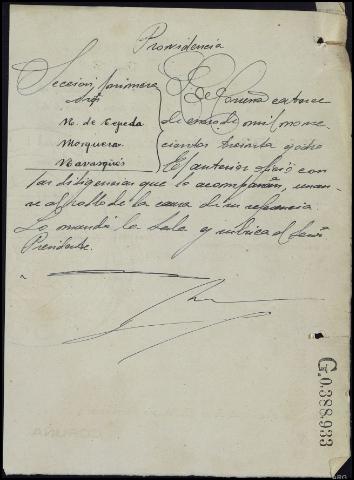 Providencia
Sección primera
Sres
M. de Cepeda
Mosquera
Navarquis
Coruña catorce
de enero de mil nove
cientos treinta y ocho
El anterior oficio con
las diligencias que lo acompañan, unan
se al rollo de la causa de su referencia.
Lo mandó la Sala y rubrica el Señor
Presidente.
G.0.388.933